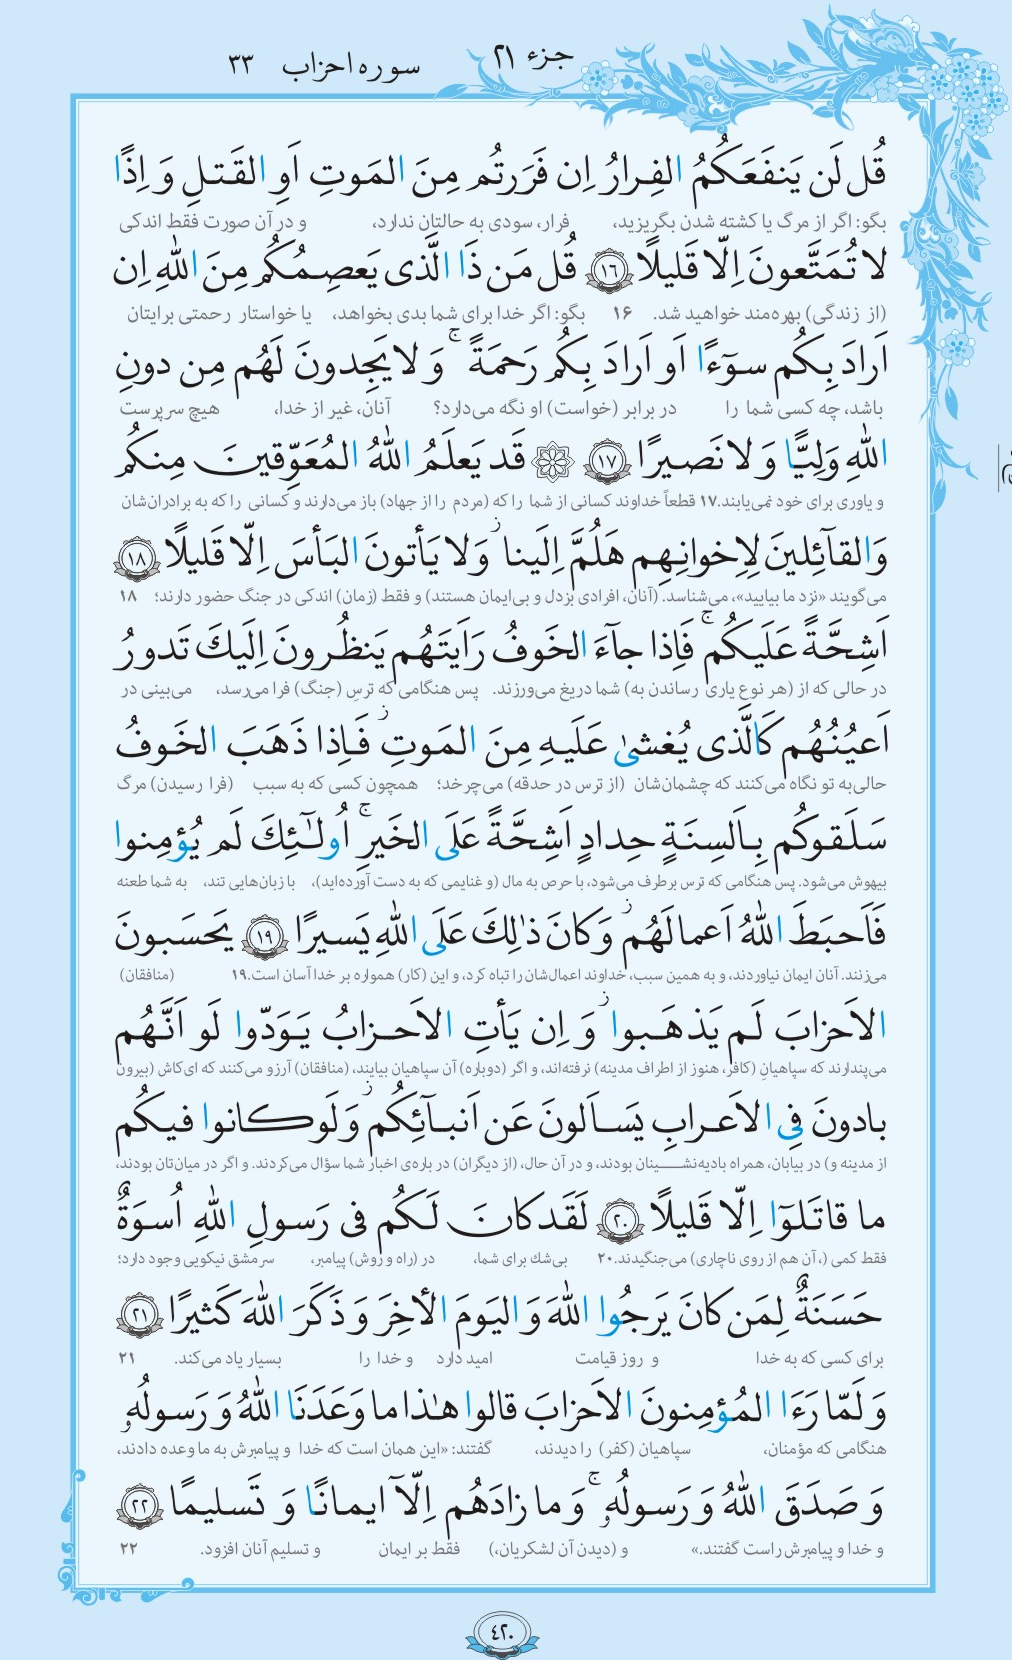 جزء ۲۱
سوره احزاب ۳۳
قُل لَن يَنفَعَكُمُ الفِرارُ اِن فَرَرتُم مِنَ المَوتِ اَوِ القَتلِ وَ اِذًا
بگو: اگر از مرگ یا کشته شدن بگریزید، فرار، سودی به حالتان ندارد، و در آن صورت فقط اندکی
لا تُمَتَّعونَ اِلّا قَليلًا ﴿۱۶﴾ قُل مَن ذَا الَّذى يَعصِمُكُم مِنَ اللّٰهِ اِن
(از زندگی) بهره‌مند خواهید شد. ۱۶ بگو: اگر خدا برای شما بدی بخواهد، یا خواستار رحمتی برایتان
اَرادَ بِكُم سوٓءًا اَو اَرادَ بِكُم رَحمَةً ۚ وَ لا يَجِدونَ لَهُم مِن دونِ
باشد، چه کسی شما را در برابر (خواست) او نگه می‌دارد؟ آنان، غیر از خدا، هیچ سرپرست
اللّٰهِ وَلِيًّا وَ لا نَصيرًا ﴿۱۷﴾ ۞ قَد يَعلَمُ اللّٰهُ المُعَوِّقينَ مِنكُم
و یاوری برای خود نمی‌یابند.۱۷ قطعاً خداوند کسانی از شما را که (مردم را از جهاد) باز می‌دارند و کسانی را که به برادران‌شان
وَالقآئِلينَ لِاِخوانِهِم هَلُمَّ اِلَينا ۖ وَلا يَأتونَ البَأسَ اِلّا قَليلًا ﴿۱۸﴾
می‌گویند «نزد ما بیایید»، می‌شناسد. (آنان، افرادی بزدل و بی‌ایمان هستند) و فقط (زمان) اندکی در جنگ حضور دارند؛ ۱۸
اَشِحَّةً عَلَيكُم ۚ فَاِذا جآءَ الخَوفُ رَاَيتَهُم يَنظُرونَ اِلَيكَ تَدورُ
در حالی که از (هر نوع یاری رساندن به) شما دریغ می‌ورزند. پس هنگامی که ترسِ (جنگ) فرا می‌رسد، می‌بینی در
اَعيُنُهُم كَالَّذى يُغشىٰ عَلَيهِ مِنَ المَوتِ ۖ فَاِذا ذَهَبَ الخَوفُ
حالی‌به تو نگاه می‌کنند که چشمان‌شان (از ترس در حدقه) می‌چرخد؛ همچون کسی که به سبب (فرا رسیدن) مرگ
سَلَقوكُم بِاَلسِنَةٍ حِدادٍ اَشِحَّةً عَلَى الخَيرِ ۚ اُولٰٓئِكَ لَم يُؤمِنوا
بیهوش می‌شود. پس هنگامی که ترس برطرف می‌شود، با حرص به مال (و غنایمی که به دست آورده‌اید)، با زبان‌هایی تند، به شما طعنه
فَاَحبَطَ اللّٰهُ اَعمالَهُم ۖ وَكانَ ذٰلِكَ عَلَى اللّٰهِ يَسيرًا ﴿۱۹﴾ يَحسَبونَ
می‌زنند. آنان ایمان نیاوردند، و به همین سبب، خداوند اعمال‌شان را تباه کرد، و این (کار) همواره بر خدا آسان است.۱۹ (منافقان)
الاَحزابَ لَم يَذهَبوا ۖ وَ اِن يَأتِ الاَحزابُ يَوَدّوا لَو اَنَّهُم
می‌پندارند که سپاهیانِ (کافر، هنوز از اطراف مدینه) نرفته‌اند، و اگر (دوباره) آن سپاهیان بیایند، (منافقان) آرزو می‌کنند که ای‌کاش (بیرون
بادونَ فِى الاَعرابِ يَسـاَلونَ عَن اَنبآئِكُم ۖ وَلَوكانوا فيكُم
از مدینه و) در بیابان، همراه بادیه‌نشینان بودند، و در آن حال، (از دیگران) در باره‌ی اخبار شما سؤال می‌کردند. و اگر در میان‌تان بودند،
ما قاتَلوٓا اِلّا قَليلًا ﴿۲۰﴾ لَقَدكانَ لَكُم فى رَسولِ اللّٰهِ اُسوَةٌ
فقط کمی (، آن هم از روی ناچاری) می‌جنگیدند.۲۰ بی‌شك برای شما، در (راه و روش) پیامبر، سرمشق نیکویی وجود دارد؛
حَسَنَةٌ لِمَن كانَ يَرجُوا اللّٰهَ وَ اليَومَ الأخِرَ وَ ذَكَرَ اللّٰهَ كَثيرًا ﴿۲۱﴾
برای کسی که به خدا و روز قیامت امید دارد و خدا را بسیار یاد می‌کند. ۲۱
وَ لَمّا رَءَا المُؤمِنونَ الاَحزابَ قالوا هٰذا ما وَعَدَنَا اللّٰهُ وَ رَسولُهٗ
هنگامی که مؤمنان، سپاهیان (کفر) را دیدند، گفتند: «این همان است که خدا و پیامبرش به ما وعده دادند،
وَ صَدَقَ اللّٰهُ وَ رَسولُهٗ ۚ وَ ما زادَهُم اِلّآ ايمانًا وَ تَسليمًا ﴿۲۲﴾
و خدا و پیامبرش راست گفتند.» و (دیدن آن لشکریان،) فقط بر ایمان و تسلیم آنان افزود. ۲۲
۴۲۰